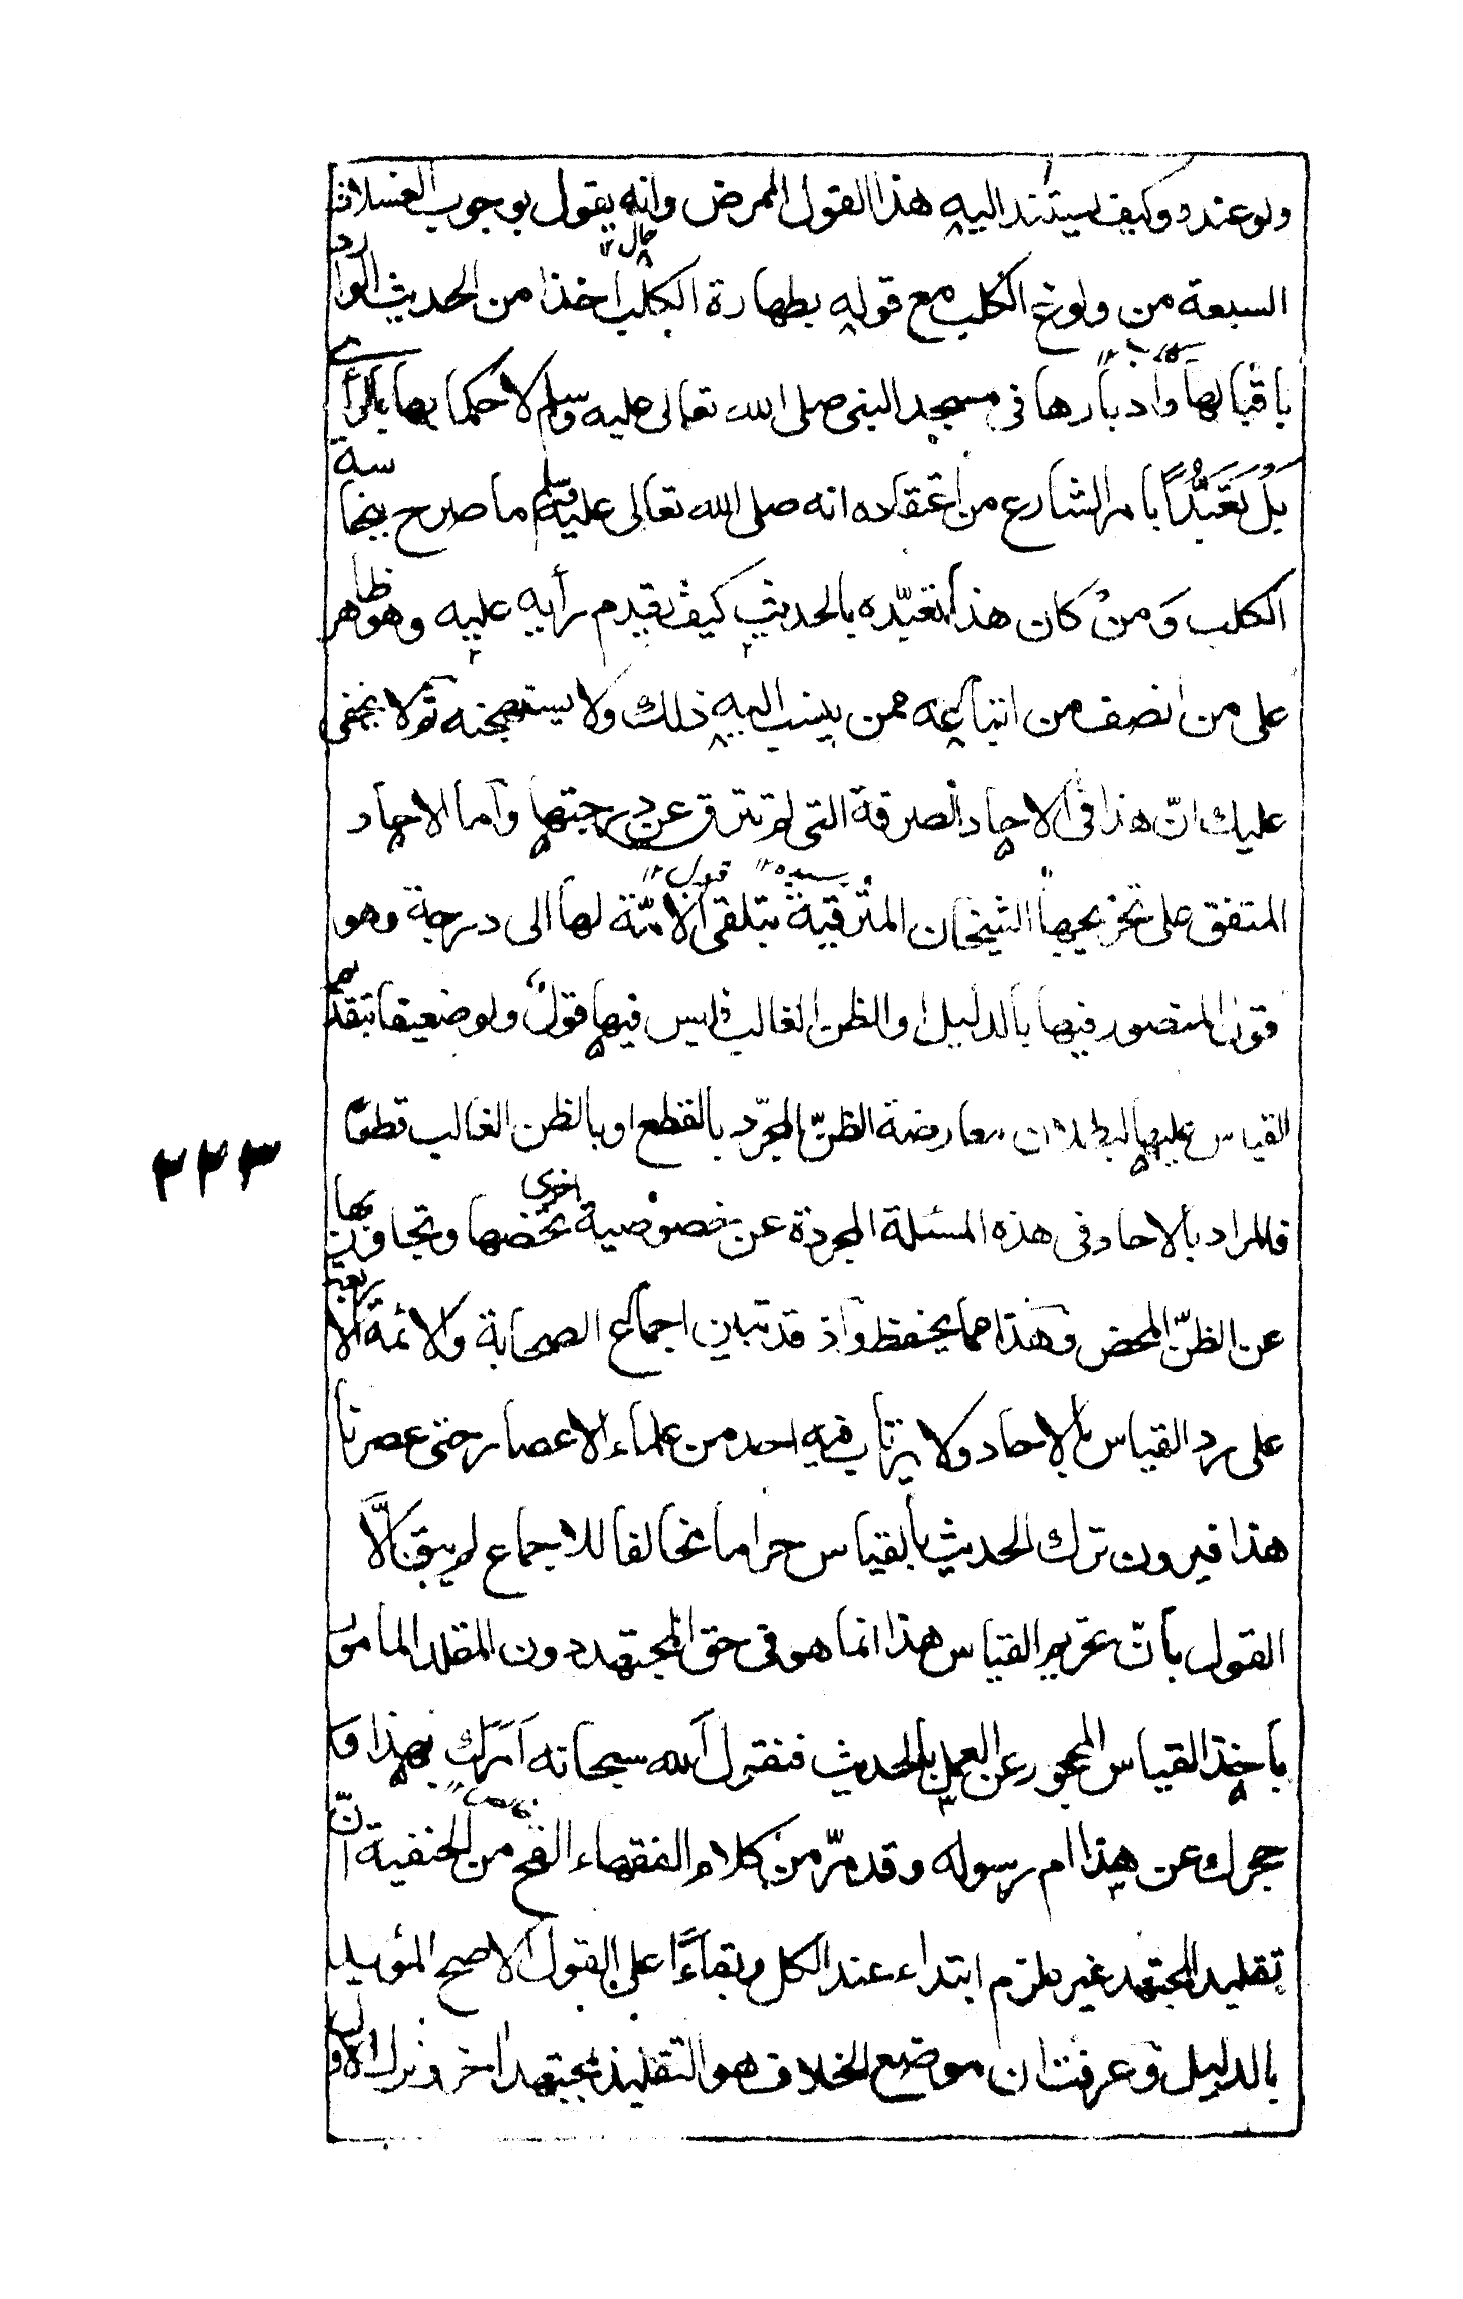 ولو عنده وكيف يستند اليه هذا القول الممرض وانه يقول بوجوب الغسلات
السبعة من ولوغ الكلب مع قوله بطهارة الكلب اخذا من الحديث الوارد
باقبالها وادبارها في مسجد النبي صلى الله تعالى عليه وسلم لا حكما بها بالرأي
بل تعبّدًا بامر الشارع من اعتقاده انه صلى الله تعالى عليه وسلم ما صرح بنجاسة
الكلب ومن كان هذا تعبّده بالحديث كيف يقدم رأيه عليه وهو ظاهر
على من انصف من اتباعه ممن ينسب اليه ذلك ولا يستهجنه ولا يخفى
عليك انّ هذا في الاحاد الصرفة التي لم تترق عن درجتها واما الاحاد
المتفق على تخريجها الشيخان المترقية بتلقى الامّة لها الى درجة وهو
المتصور فيها بالدليل او الظن الغالب فليس فيها قول ولو ضعيفا بتقدم
القياس عليها لبطلان معارضة الظنّ المجرّد بالقطع او بالظن الغالب قطعًا
فالمراد بالاحاد في هذه المسئلة المجردة عن خصوصية اخرى تخصها وتجاوز بها
عن الظنّ المحض وهذا مما يحفظ واذ قد تبين اجماع الصحابة والائمة الاربعة
على رد القياس بالاحاد ولا يرتاب فيه احد من علماء الاعصار حتى عصرنا
هذا فيرون ترك الحديث بالقياس حراما مخالفا للاجماع لم يبق الّا
القول بانّ تحريم القياس هذا انما هو في حق المجتهد دون المقلد المامور
باخذ القياس المحجور عن العمل بالحديث فنقول آلله سبحانه امرك بهذا و
حجرك عن هذا ام رسوله وقد مرّ من كلام الفقهاء من الحنفية انّ
تقليد المجتهد غير ملزم ابتداء عند الكل وبقاءً على القول الاصح المؤيد
بالدليل وعرفت ان موضع الخلاف هو التقليد لمجتهد اخر وترك الاول
٢٢٣